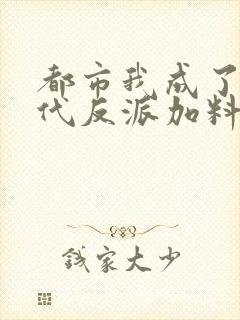 都市我成了
代反派加料
钱家大少